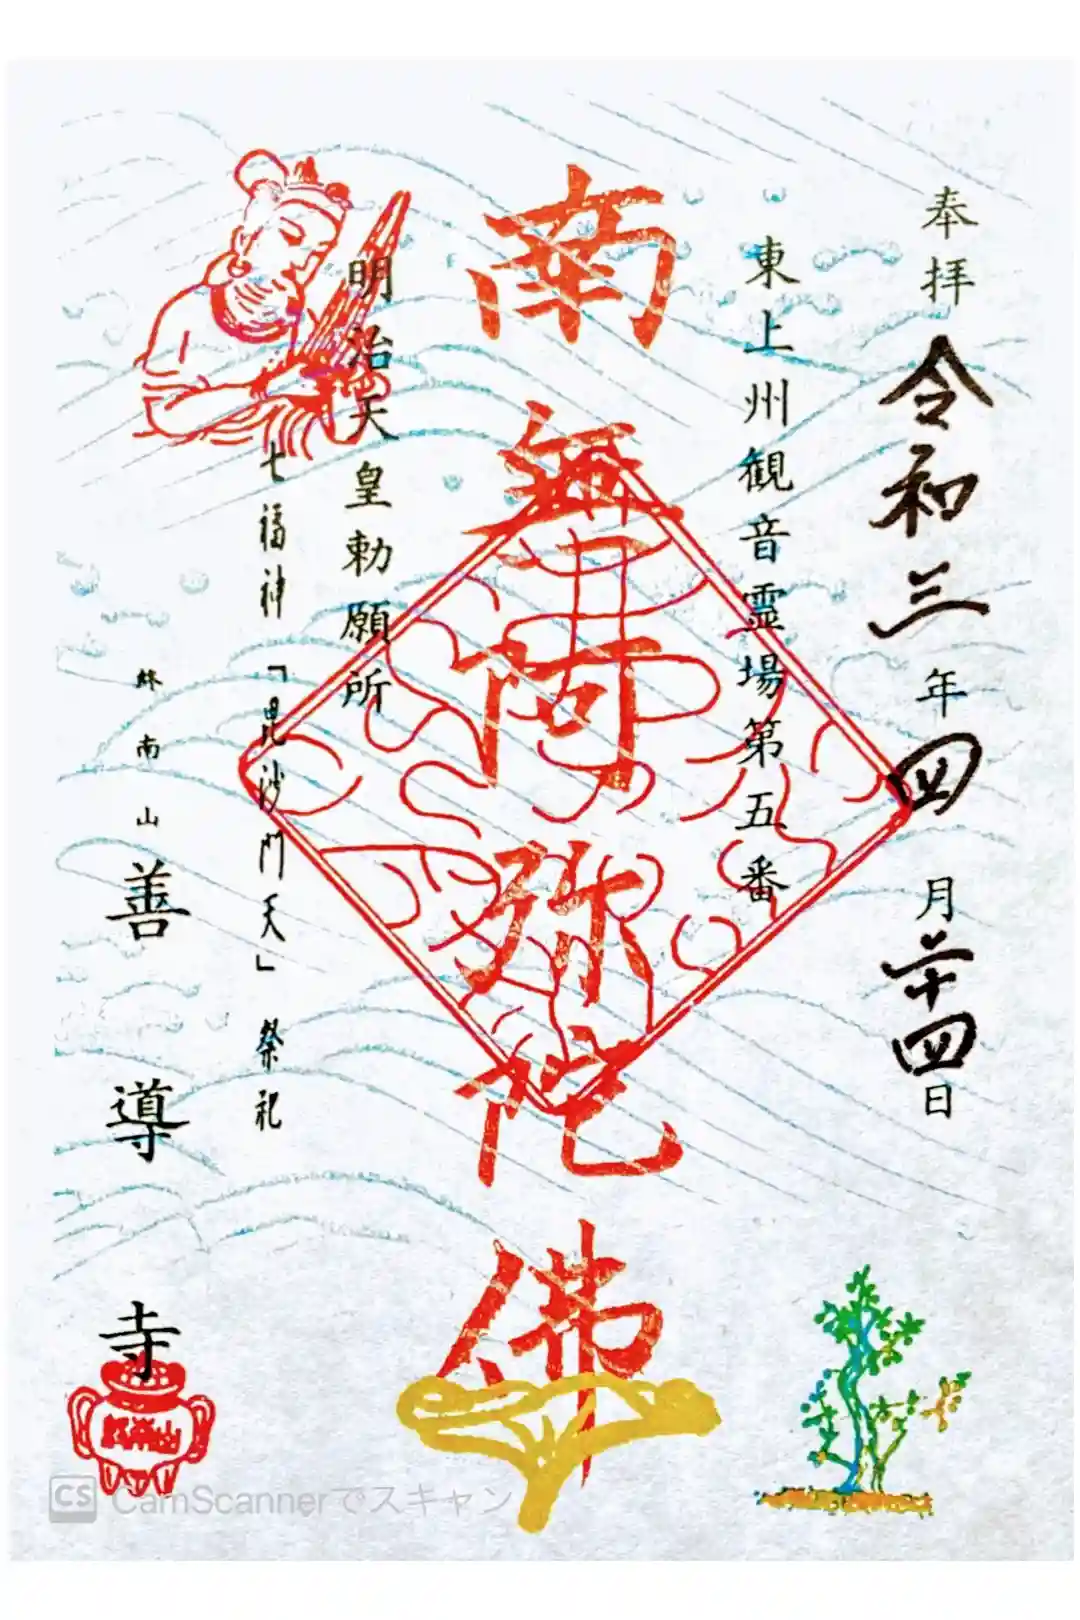 奉拝 令和三年四月二十四日
東上州観音霊場第五番
南無阿弥陀佛
明治天皇勅願所
七福神「毘沙門天」祭祀
終南山 善導寺
CS CamScannerでスキャン